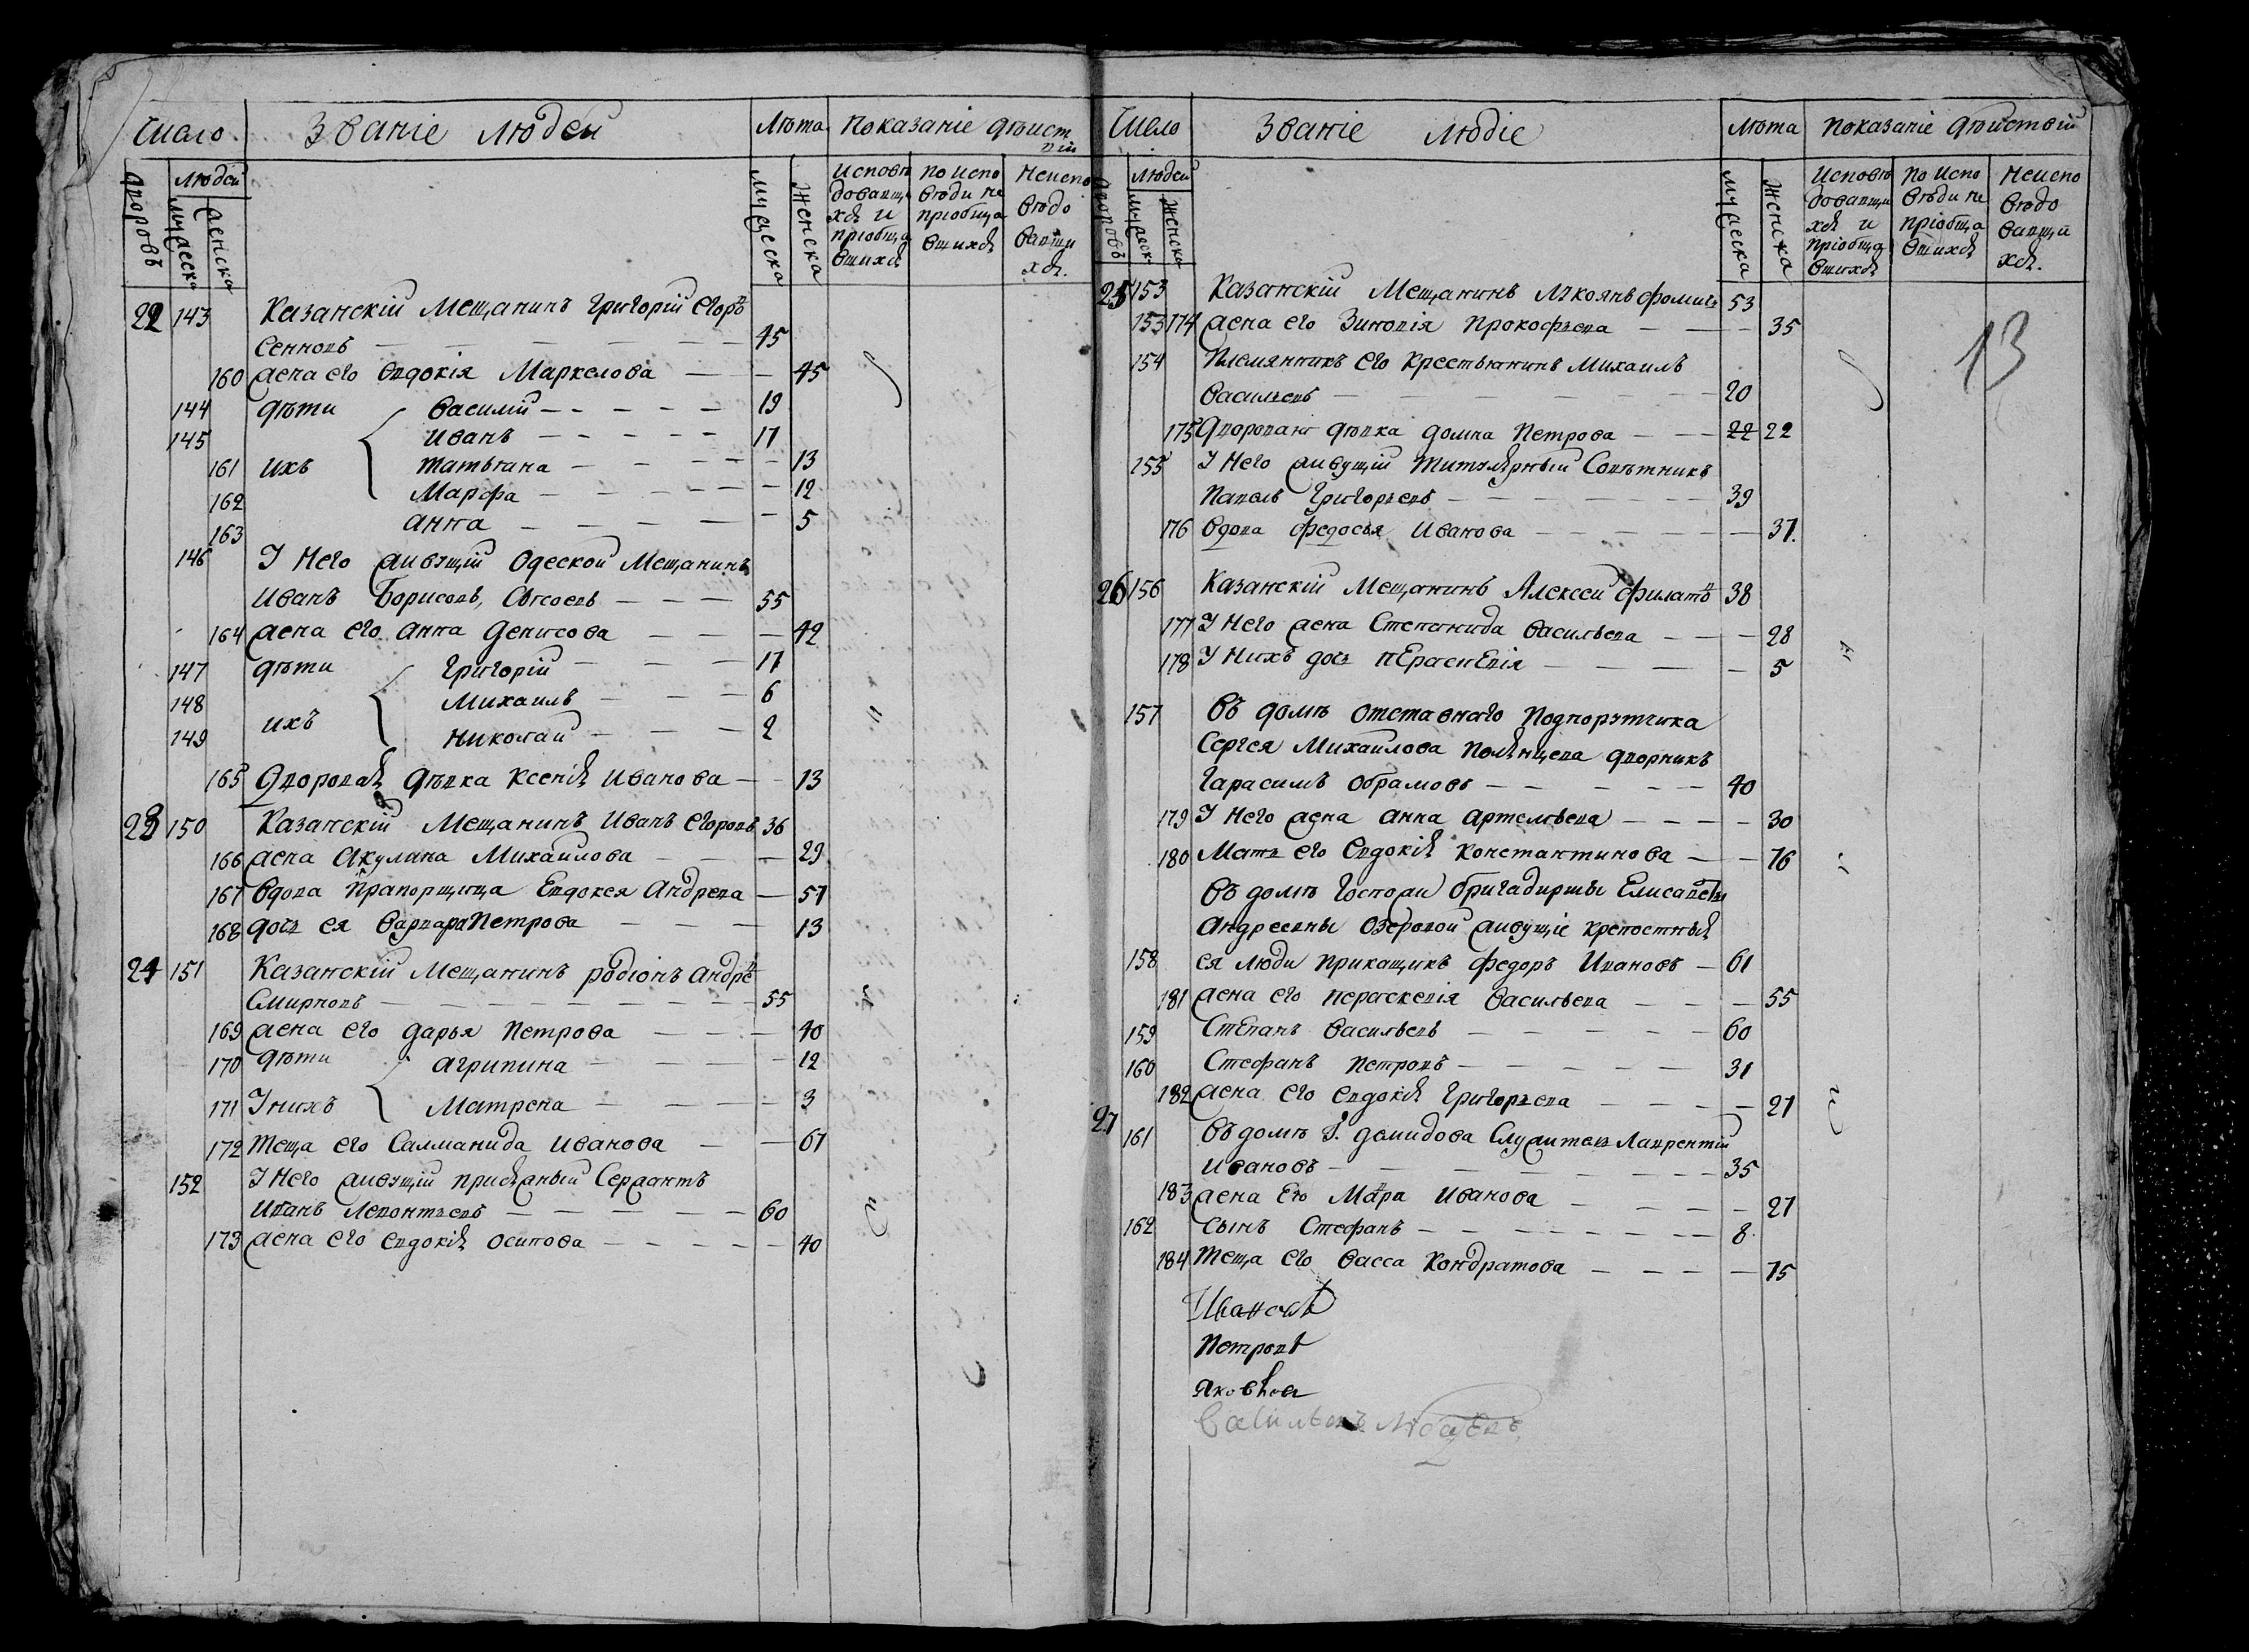 Число Званіе людей Лѣта Показаніе дѣист
віи
дворовъ людей мужеска женска мужеска женска
Исповѣ
довавши
хся и
пріобща
вшихся
по испо
вѣди не
пріобща
вшихся
Неиспо
вѣдо
вавши
хся.
22 143 Казанскій Мещанинъ Григорій Егоровъ
Сенновъ — 45
160 жена его Евдокія Маркелова — 45
144 дѣти Василій — 19
145 Иванъ — 17
161 ихъ татьяна — 13
162 Марфа — 12
163 анна — 5
146 У Него живущій Одеской Мещанинъ
Иванъ Борисовъ, Сысоевъ — 55
164 жена его анна денисова — 42
147 дѣти Григорій — 17
148 Михаилъ — 6
149 ихъ Николай — 2
165 Дворовая дѣвка Ксенія Иванова — 13
23 150 Казанскій Мещанинъ Иванъ Егоровъ 36
166 жена Акулина Михаилова — 29
167 Вдова Прапорщица Евдокея Андрева — 57
168 дочь ея Варвара Петрова — 13
24 151 Казанскій Мещанинъ родіонъ андрѣ
Смирновъ — 55
169 жена его дарья Петрова — 40
170 дѣти агрипина — 12
171 У нихъ Матрена — 3
172 Теща его Салманида Иванова — 67
152 У Него живущій присяжный Сержантъ
Иванъ Леонтьевъ — 60
173 жена его Евдокія осипова — 40
Число Званіе людіе Лѣта Показаніе дѣйствій
дворовъ людей мужеск женска мужеска женска
Исповѣ
довавши
хся и
пріобща
вшихся
по испо
вѣди не
пріобща
вшихся
Неиспо
вѣдо
вавши
хся.
13
25 153 Казанскій Мещанинъ Лукоянъ фомичъ 53
153 174 жена его Зиновія Прокофьева — 35
154 Племянникъ его крестьянинъ Михаилъ
Васильевъ — 20
175 Дворовая дѣвка домна Петрова — 22 22
155 У Него живущій титулярный Совѣтникъ
Павелъ Григорьевъ — 39
176 Вдова федосья Иванова — 37.
26 156 Казанскій Мещанинъ Алексей филатовъ 38
177 У Него жена Степанида Васильева — 28
178 У Нихъ дочь пЕраскЕвія — 5
157 Въ домѣ отставнаго Подпорутчика
Сергея Михаилова Полянцева дворникъ
Гарасимъ Обрамовъ — 40
179 У Него жена анна артемьева — 30
180 Мать его Евдокія Константинова — 76
Въ домѣ Госпожи бригадирши Елисаветы
Андреевны Озеровой живущіе крепостныя
158 ея люди прикащикъ федоръ Ивановъ — 61
181 жена его пераскевія Васильева — 55
159 Степанъ Васильевъ — 60
160 Стефанъ Петровъ — 31
182 жена его Евдокія Григорьева — 27
27
161 Въ домѣ Г. демидова Служитель Лаврентій
Ивановъ — 35
183 жена Его Мавра Иванова — 27
162 Сынъ Стефанъ — 8.
184 Теща его Васса Кондратова — 75
Ивановъ
Петровъ
Яковлев
Васильевъ